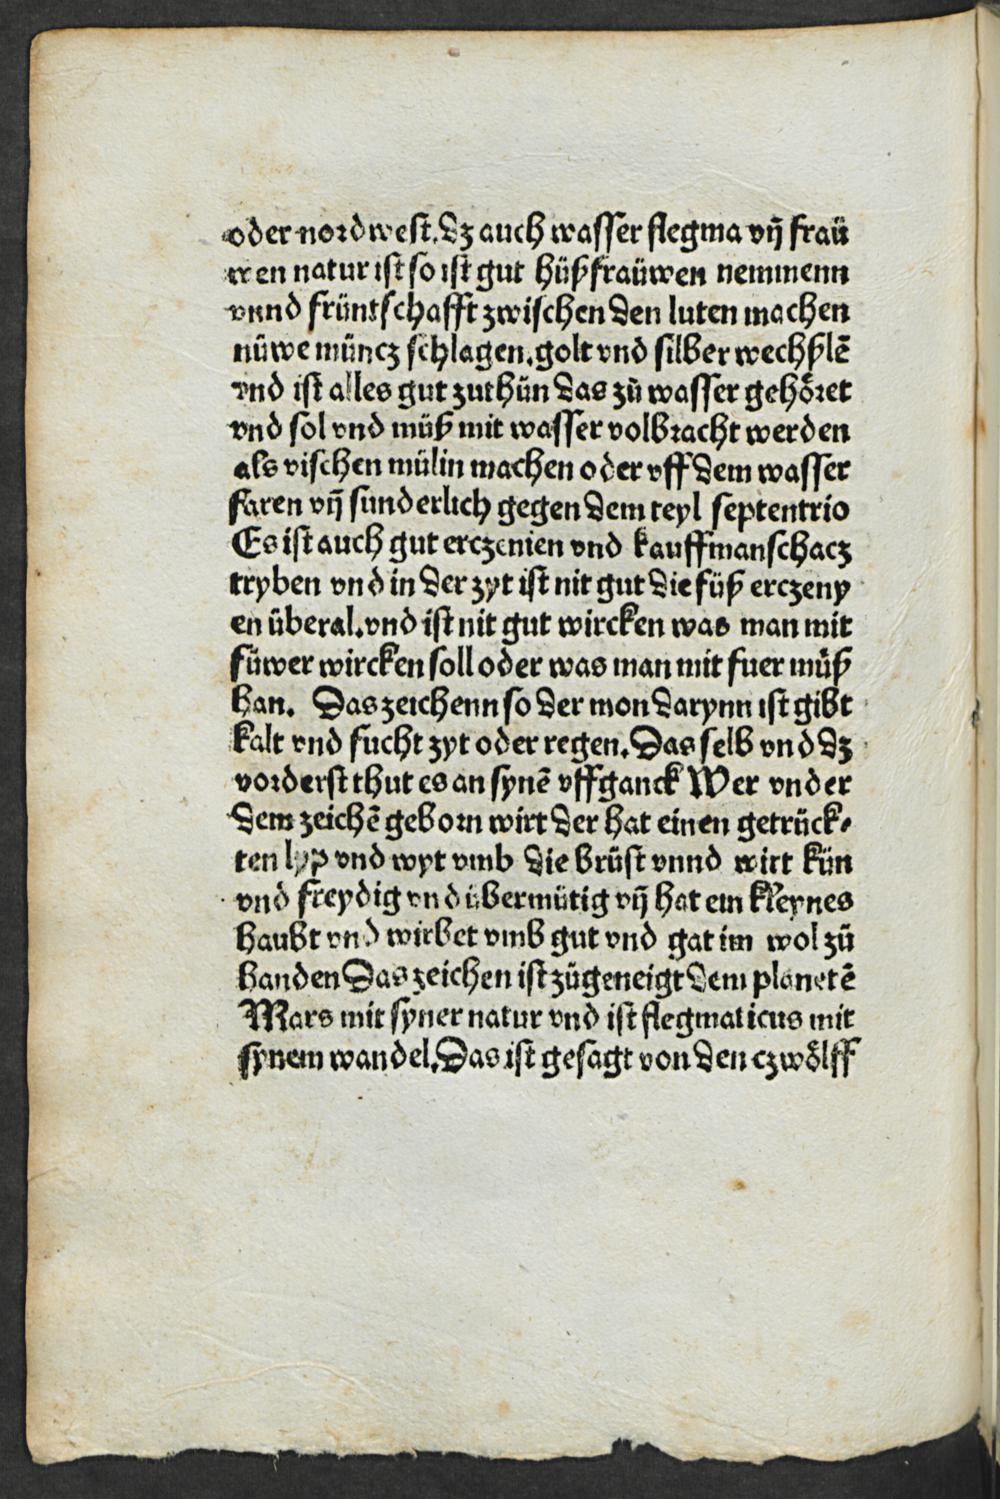 oder nordwest. dz auch wasser flegma vn̄ fraü
wen natur ist so ist gut hüßfraüwen nemmenn
vnnd früntschafft zwischen den luten machen
nüwe müncz schlagen. golt vnd silber wechßlē
vnd ist alles gut zuthün das zü wasser gehöret
vnd sol vnd müß mit wasser volbracht werden
als vischen mülin machen oder vff dem wasser
faren vn̄ sunderlich gegen dem teyl septentrio
Es ist auch gut erczenien vnd kauffmanschacz
tryben vnd in der zyt ist nit gut die füß erczeny
en überal. vnd ist nit gut wircken was man mit
füwer wircken soll oder was man mit fuer müß
han. Das zeichenn so der mon darynn ist gibt
kalt vnd fucht zyt oder regen. Das selb vnd dz
vorderst thut es an synē vffganck Wer vnder
dem zeichē geborn wirt der hat einen getrück⸗
ten lyp vnd wyt vmb die brüst vnnd wirt kün
vnd freydig vnd übermütig vn̄ hat ein kleynes
haubt vnd wirbet vmb gut vnd gat im wol zü
handen Das zeichen ist zügeneigt dem planetē
Mars mit syner natur vnd ist flegmaticus mit
synem wandel. Das ist gesagt von den czwölff